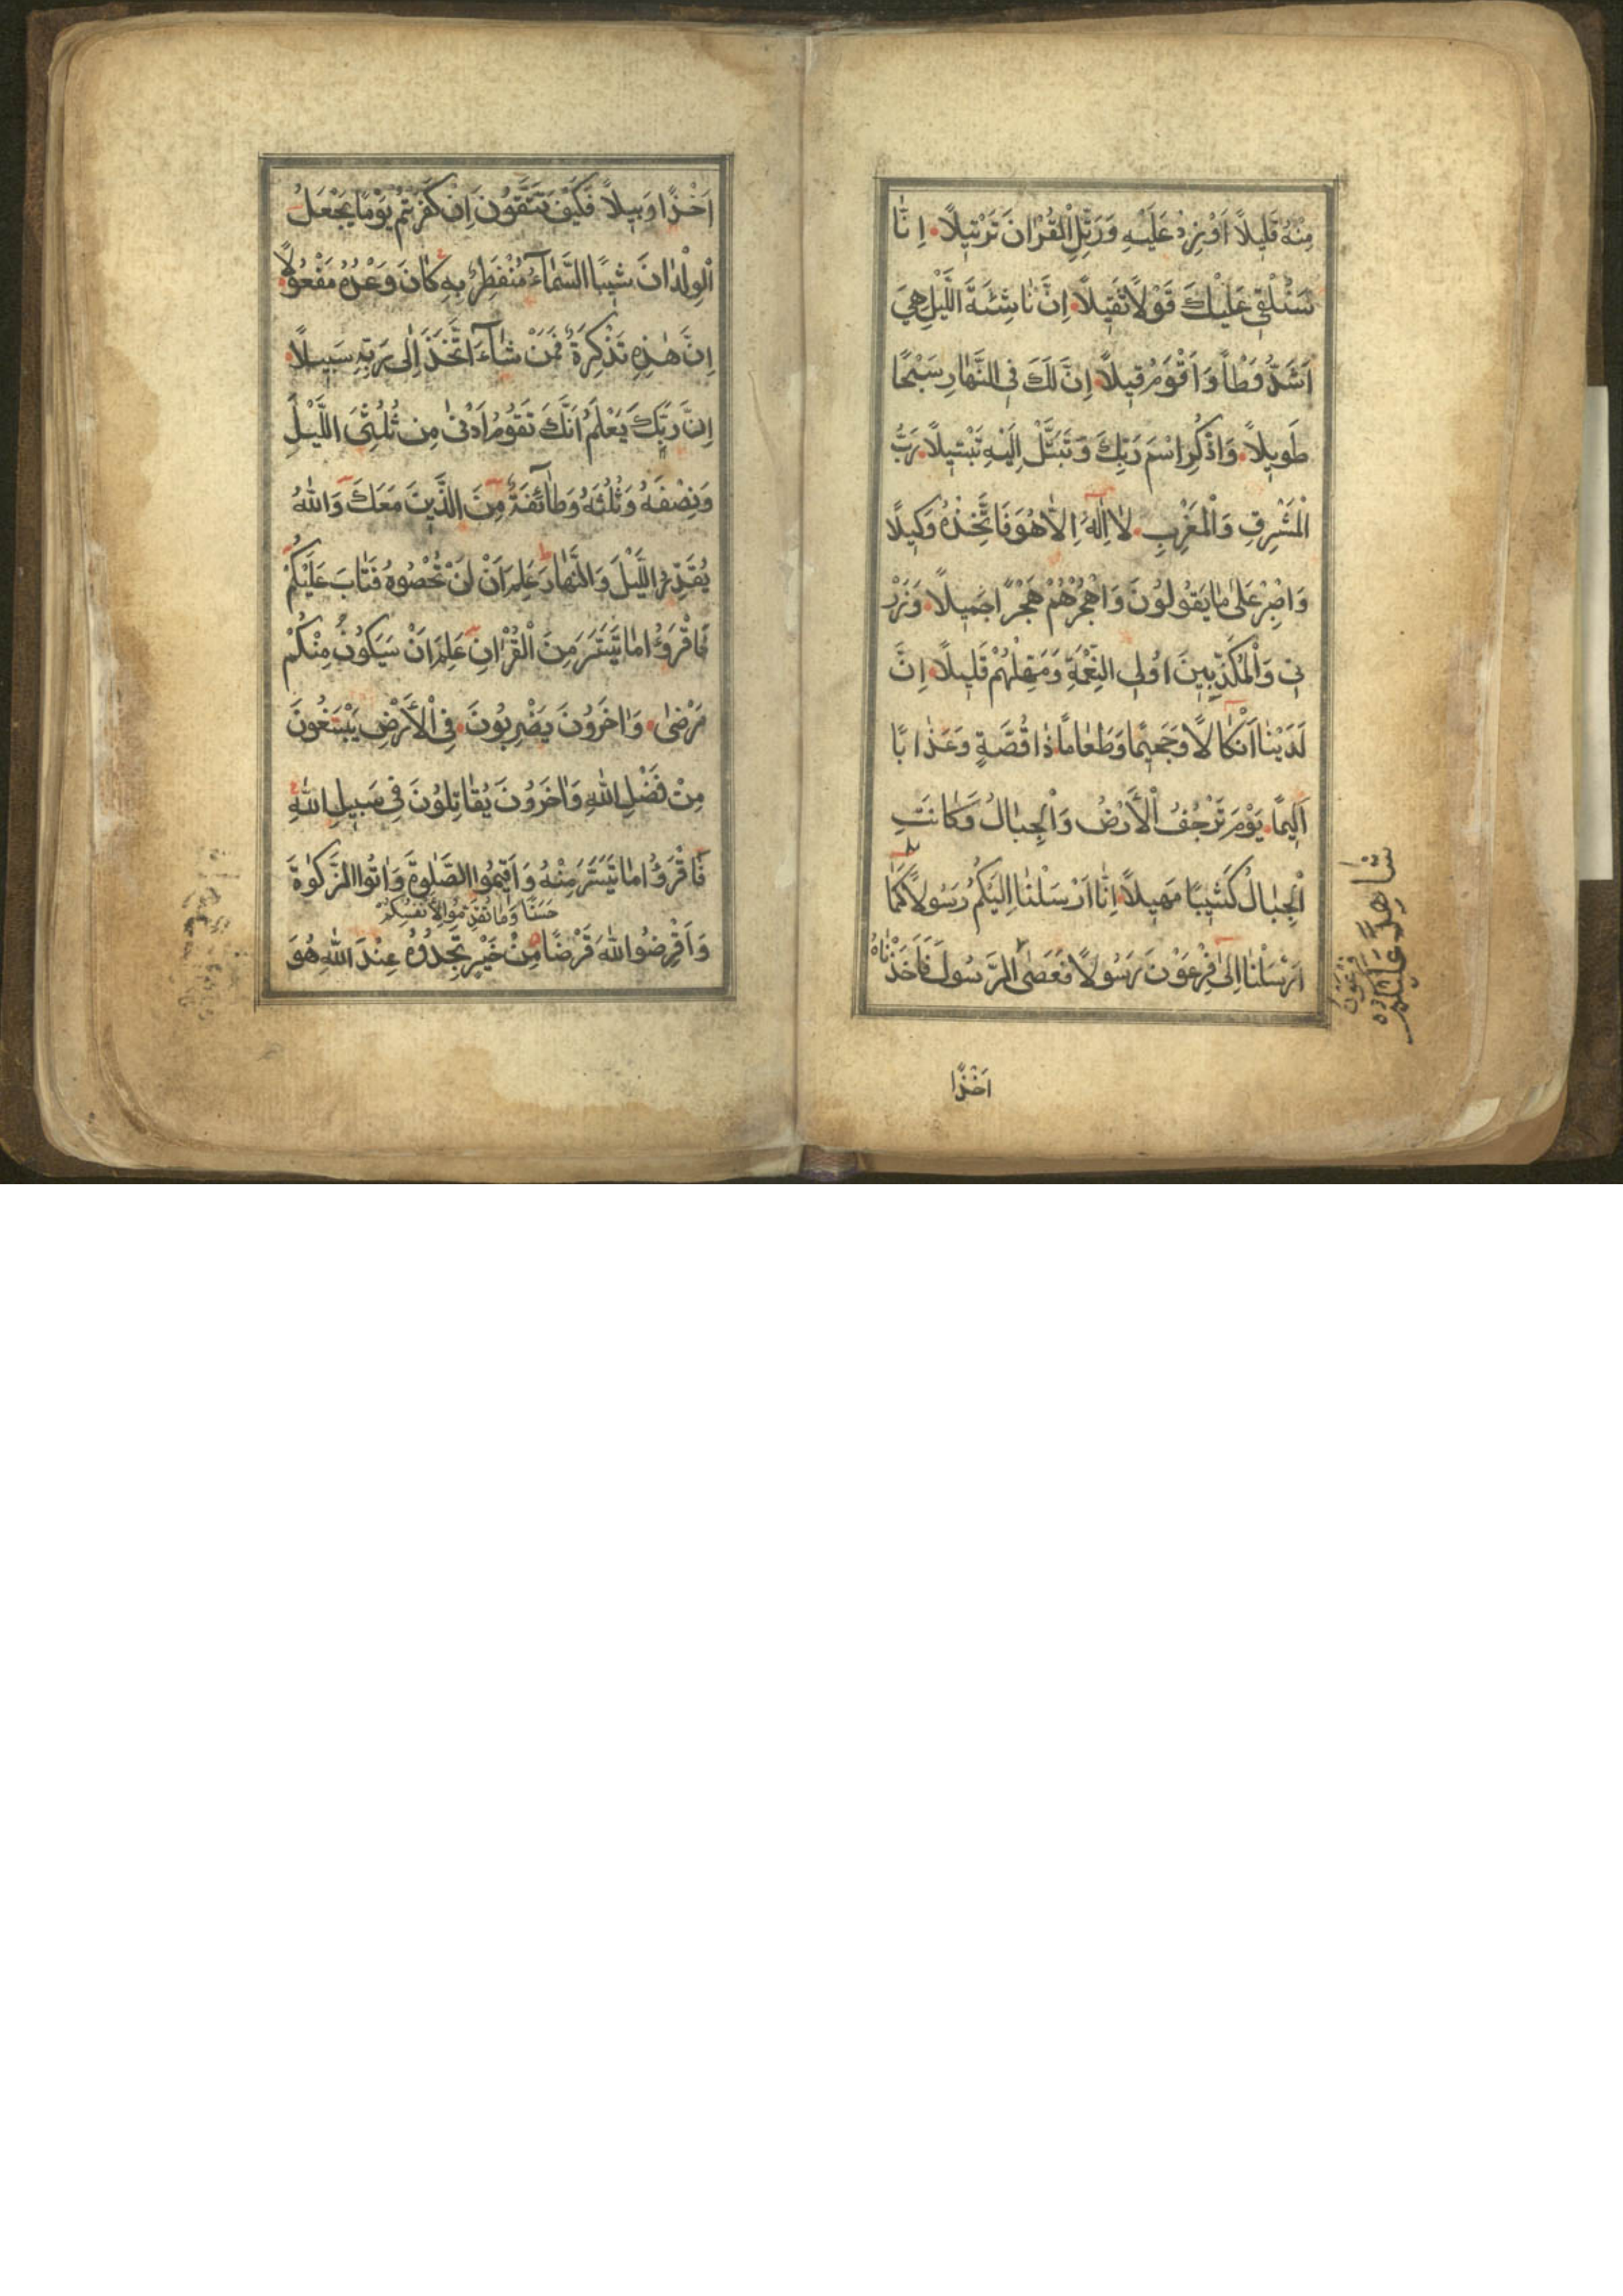 مِنْهُ قَلِيلاً اَوْ زِدْ عَلَيْهِ وَرَتِّلِ الْقُرْاٰنَ تَرْتِيلاً اِنَّا
سَنُلْقِي عَلَيْكَ قَوْلاً ثَقِيلاً اِنَّ نَاشِئَةَ اللَّيْلِ هِيَ
اَشَدُّ وَطْاً وَاَقْوَمُ قِيلاً اِنَّ لَكَ فِي النَّهَارِ سَبْحًا
طَوِيلاً وَاذْكُرِ اسْمَ رَبِّكَ وَتَبَتَّلْ اِلَيْهِ تَبْتِيلاً رَبُّ
الْمَشْرِقِ وَالْمَغْرِبِ لَا اِلٰهَ اِلَّا هُوَ فَاتَّخِذْهُ وَكِيلاً
وَاصْبِرْ عَلٰى مَا يَقُولُونَ وَاهْجُرْهُمْ هَجْرًا جَمِيلاً وَذَرْ
نِي وَالْمُكَذِّبِينَ اُولِي النِّعْمَةِ وَمَهِّلْهُمْ قَلِيلاً اِنَّ
لَدَيْنَا اَنْكَالاً وَجَحِيمًا وَطَعَامًا ذَا غُصَّةٍ وَعَذَابًا
اَلِيمًا يَوْمَ تَرْجُفُ الْاَرْضُ وَالْجِبَالُ وَكَانَتِ
الْجِبَالُ كَثِيبًا مَهِيلاً اِنَّا اَرْسَلْنَا اِلَيْكُمْ رَسُولاً كَمَا
شَاهِدًا عَلَيْكُمْ
اَرْسَلْنَا اِلٰى فِرْعَوْنَ رَسُولاً فَعَصٰى الرَّسُولَ فَاَخَذْنَاهُ
فِرْعَوْنُ
اَخْذًا
اَخْذًا وَبِيلاً فَكَيْفَ تَتَّقُونَ اِنْ كَفَرْتُمْ يَوْمًا يَجْعَلُ
الْوِلْدَانَ شِيبًا السَّمَآءُ مُنْفَطِرٌ بِهِ كَانَ وَعْدُهُ مَفْعُولاً
اِنَّ هٰذِهِ تَذْكِرَةٌ فَمَنْ شَآءَ اتَّخَذَ اِلٰى رَبِّهِ سَبِيلاً
اِنَّ رَبَّكَ يَعْلَمُ اَنَّكَ تَقُومُ اَدْنٰى مِنْ ثُلُثَيِ اللَّيْلِ
وَنِصْفَهُ وَثُلُثَهُ وَطَآئِفَةٌ مِنَ الَّذِينَ مَعَكَ وَاللّٰهُ
يُقَدِّرُ اللَّيْلَ وَالنَّهَارَ عَلِمَ اَنْ لَنْ تُحْصُوهُ فَتَابَ عَلَيْكُمْ
فَاقْرَؤُا مَا تَيَسَّرَ مِنَ الْقُرْاٰنِ عَلِمَ اَنْ سَيَكُونُ مِنْكُمْ
مَرْضٰى وَاٰخَرُونَ يَضْرِبُونَ فِي الْاَرْضِ يَبْتَغُونَ
مِنْ فَضْلِ اللّٰهِ وَاٰخَرُونَ يُقَاتِلُونَ فِي سَبِيلِ اللّٰهِ
فَاقْرَؤُا مَا تَيَسَّرَ مِنْهُ وَاَقِيمُوا الصَّلٰوةَ وَاٰتُوا الزَّكٰوةَ
حَسَنًا وَمَا تُقَدِّمُوا لِاَنْفُسِكُمْ
وَاَقْرِضُوا اللّٰهَ قَرْضًا مِنْ خَيْرٍ تَجِدُوهُ عِنْدَ اللّٰهِ هُوَ